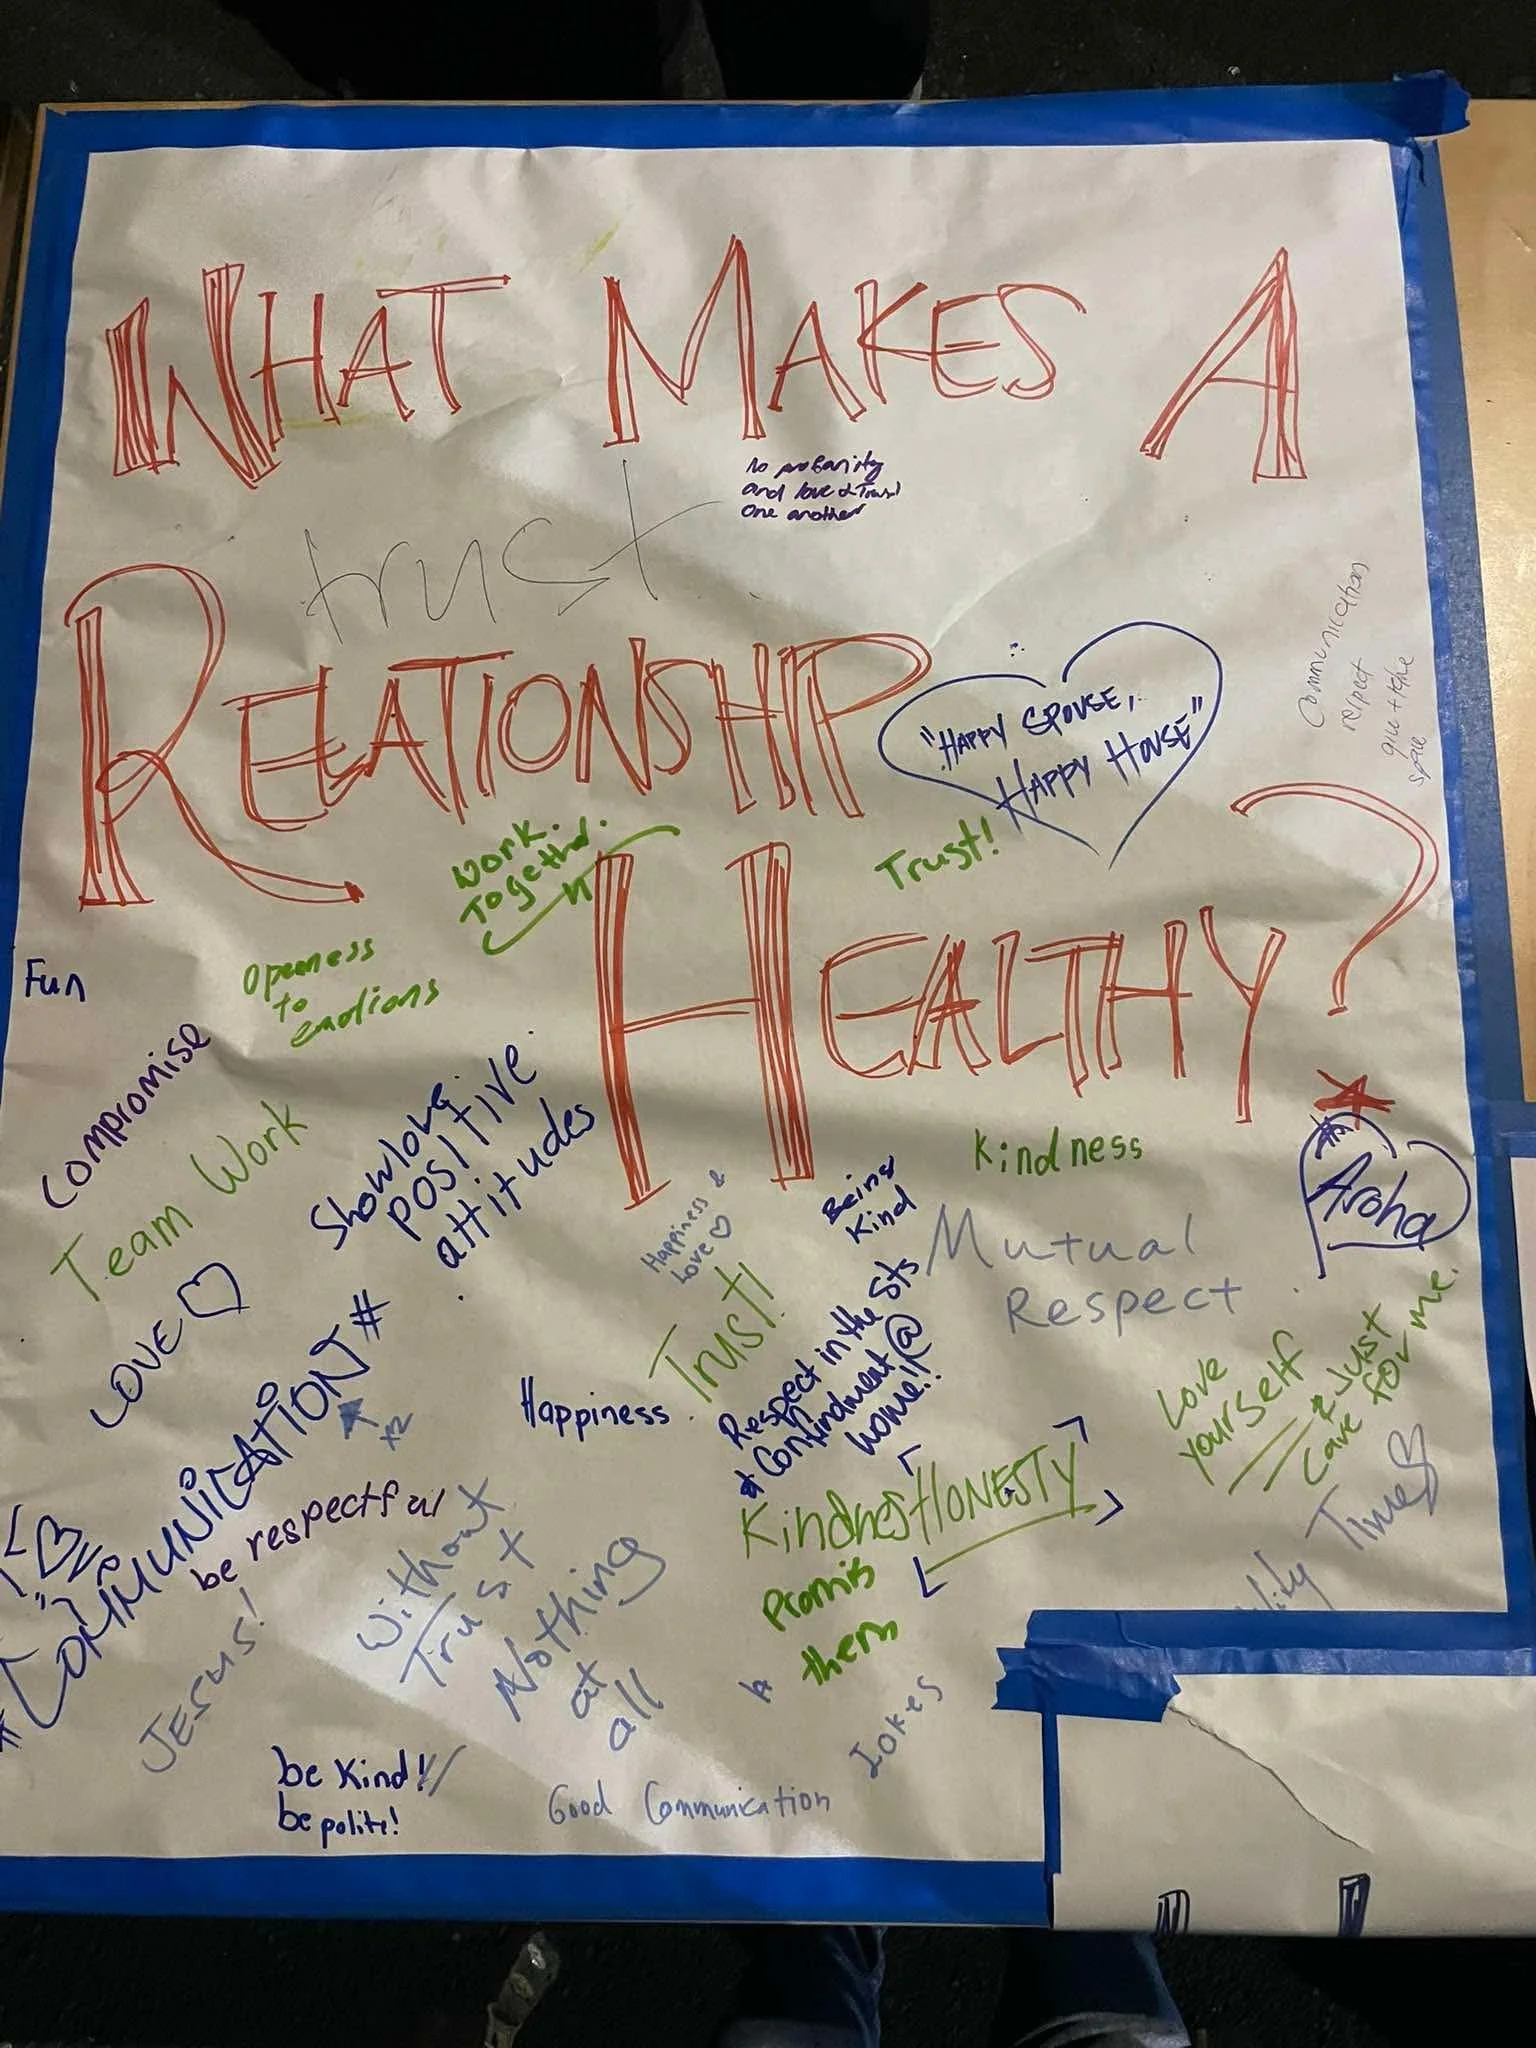 WHAT MAKES A
No profanity
and love & Trust
One another
trust
RELATIONSHIP
"HAPPY SPOUSE,
HAPPY HOUSE"
Communication
respect
give + take
space
Work
Together.
Trust!
HEALTHY?
Fun
Openness
to
emotions
Compromise
Team Work
Show love
positive
attitudes
Kindness
#1
Aroha
Being
Kind
Happiness &
Love
Mutual
Respect
LOVE
Trust!
Respect in the Sts
& in
Confindment @
home!!
Love
yourself
& Just
Care for me.
#COMMUNICATION#
x2
Happiness
be respectful
Without
Trust
Nothing
at
all
Kindnes HONESTY
Time
Promis
them
JESUS!
Jokes
be Kind!!
be polite!
Good Communication